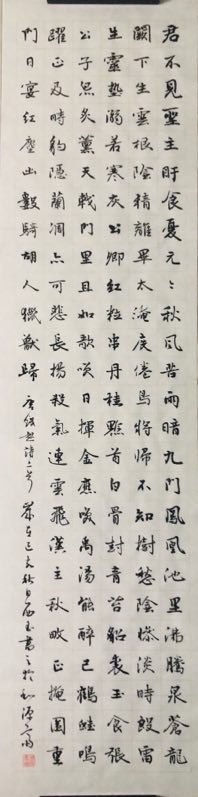 君不見聖主旰食憂元々秋風苦雨暗九門鳳凰池里沸騰泉蒼龍
闕下生雲根陰精離畢太淹度倦鳥將歸不知樹愁陰慘淡時殷雷
生靈墊溺若寒灰公卿紅粒串丹桂黔首白骨封青苔貂裘玉食張
公子炰炙薰天戟門里且如歌笑日揮金應笑禹湯能醉己鶴蛙鳴
躍正及時豹隱蘭凋亦可悲長楊殺氣連雲飛漢主秋畋正掩圍重
門日宴紅塵出數騎胡人獵獸歸 唐錢起詩二首 歲在己亥秋月 書之於